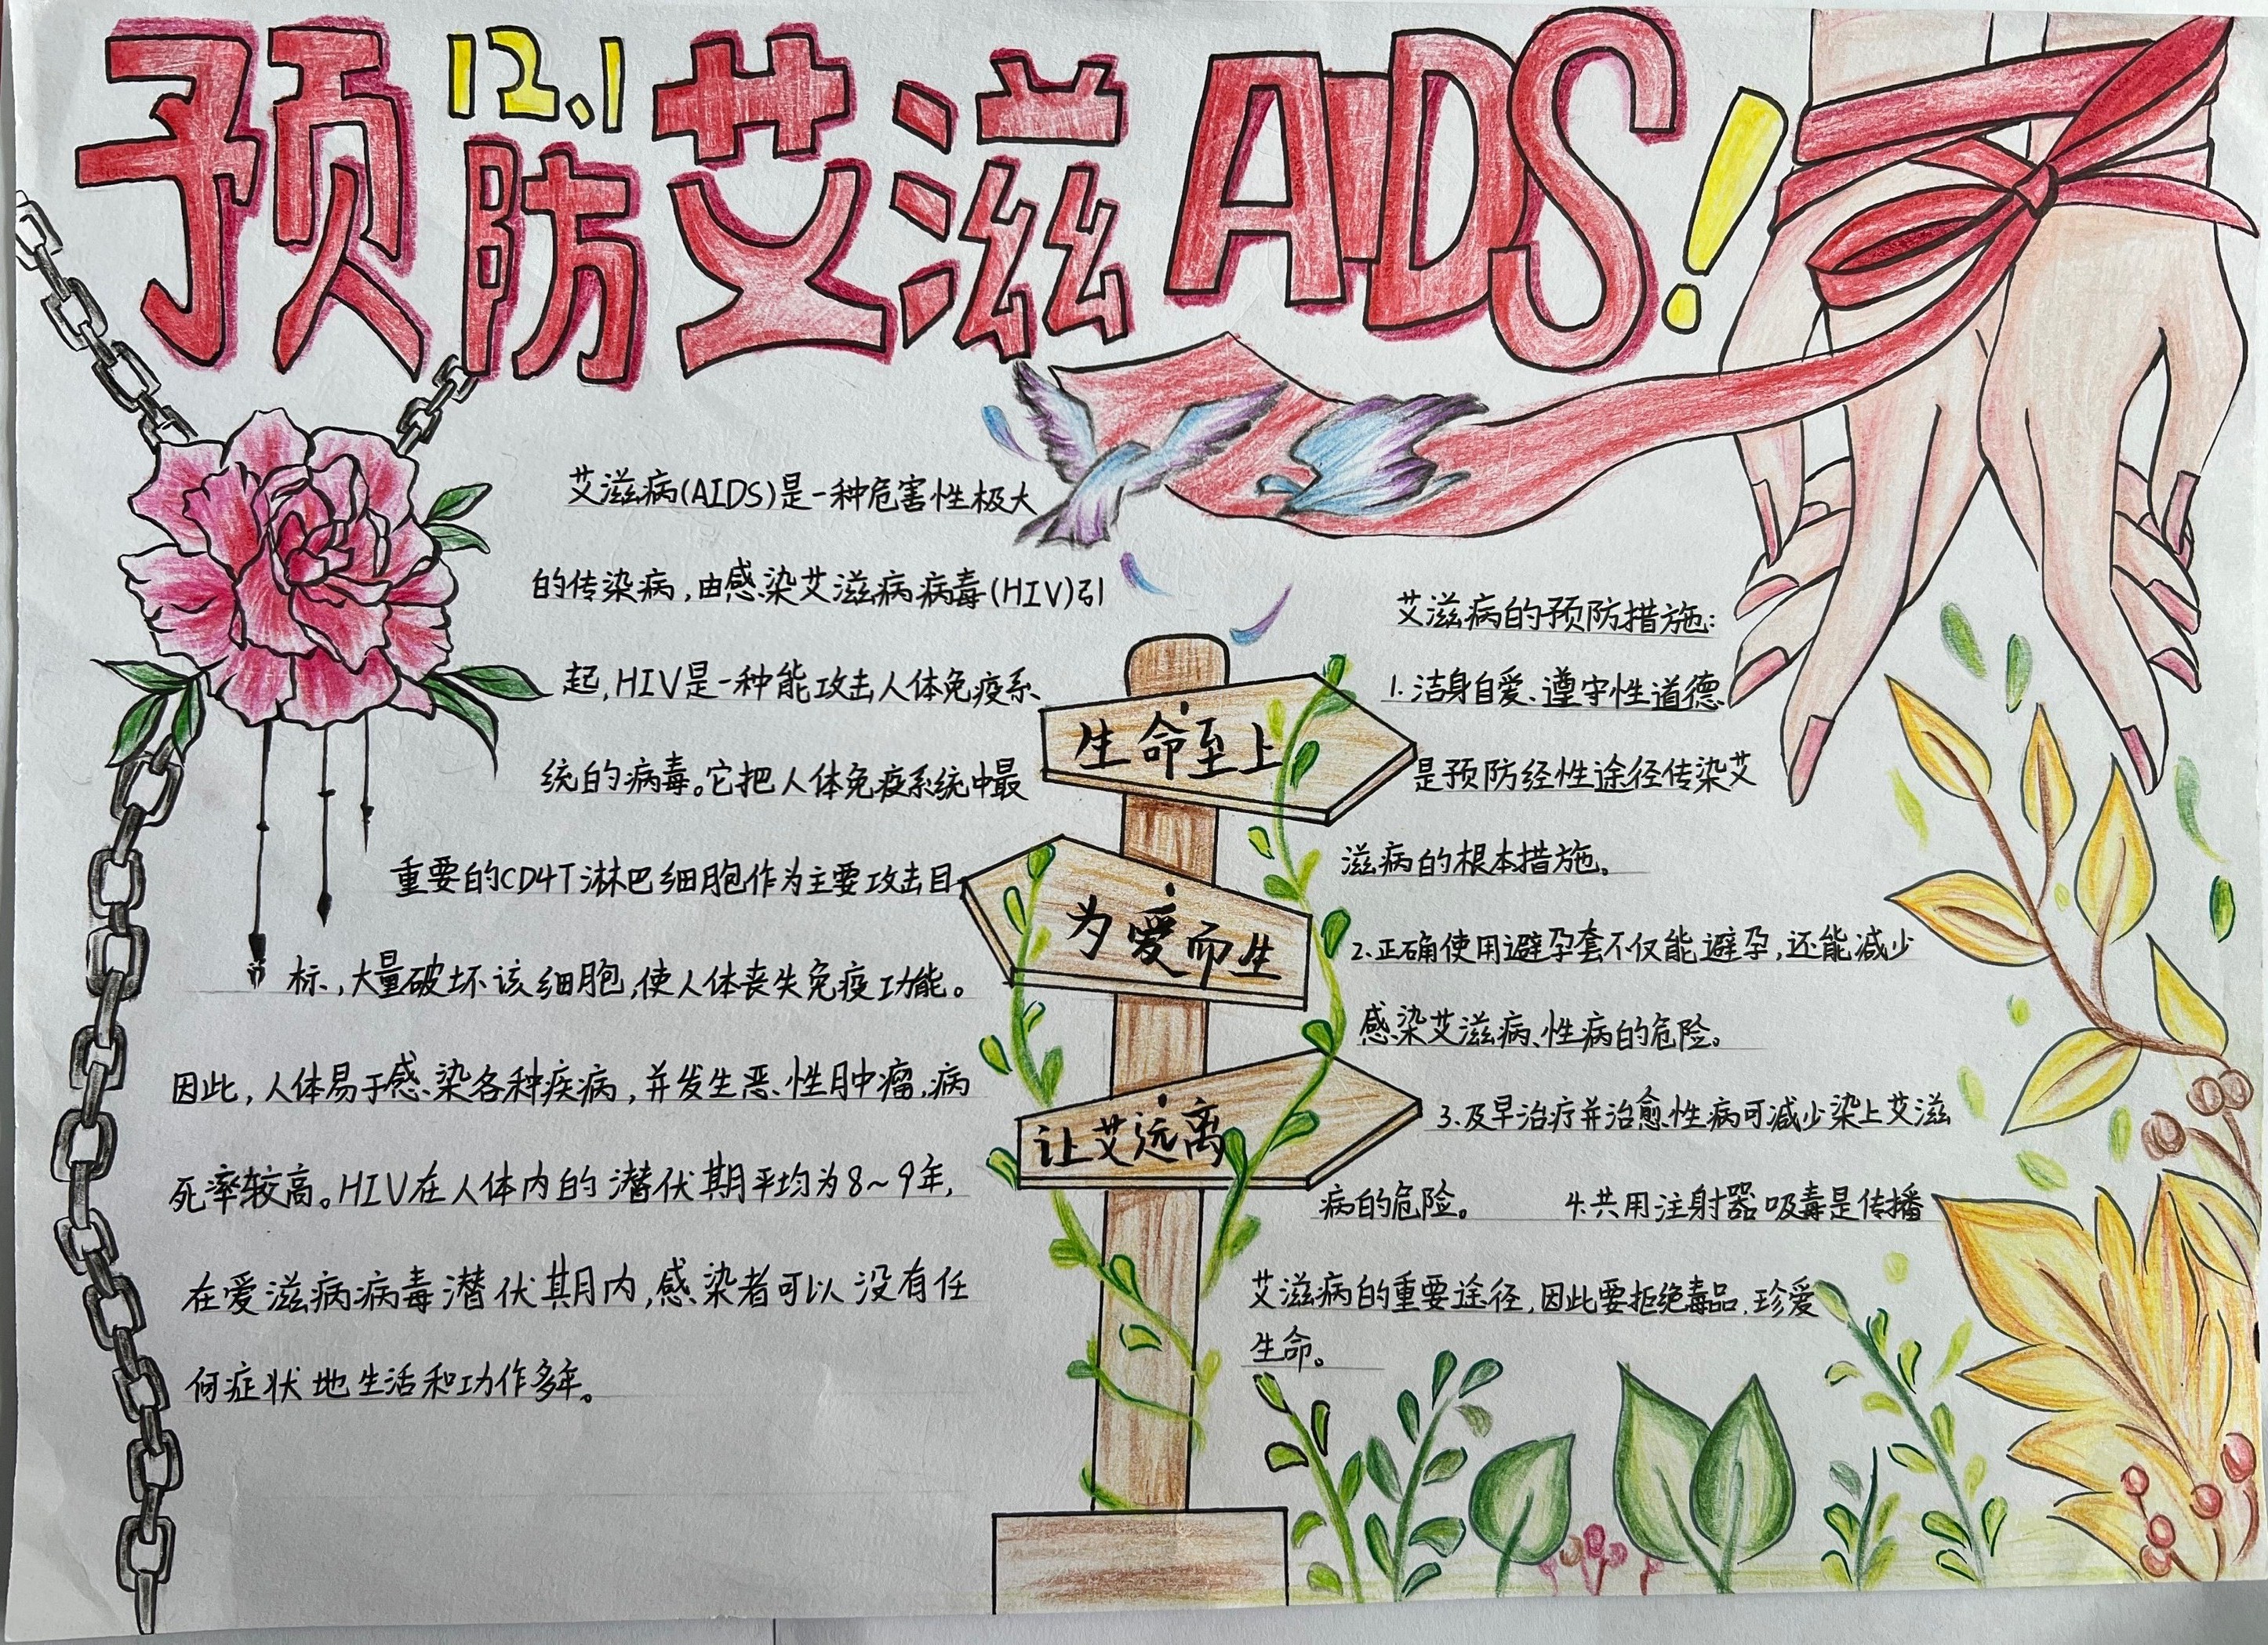 12.1
预防艾滋AIDS!
艾滋病(AIDS)是一种危害性极大
的传染病,由感染艾滋病病毒(HIV)引
起,HIV是一种能攻击人体免疫系
统的病毒。它把人体免疫系统中最
重要的CD4T淋巴细胞作为主要攻击目
标,大量破坏该细胞,使人体丧失免疫功能。
因此,人体易于感染各种疾病,并发生恶性肿瘤,病
死率较高。HIV在人体内的潜伏期平均为8~9年,
在爱滋病病毒潜伏期内,感染者可以没有任
何症状地生活和功作多年。
生命至上
为爱而生
让艾远离
艾滋病的预防措施:
1.洁身自爱、遵守性道德
是预防经性途径传染艾
滋病的根本措施。
2.正确使用避孕套不仅能避孕,还能减少
感染艾滋病、性病的危险。
3.及早治疗并治愈性病可减少染上艾滋
病的危险。 4.共用注射器吸毒是传播
艾滋病的重要途径,因此要拒绝毒品,珍爱
生命。